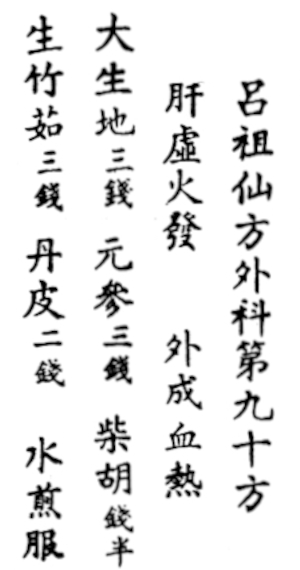 呂祖仙方外科第九十方
肝虛火發 外成血熱
大生地三錢 元參三錢 柴胡錢半
生竹茹三錢 丹皮二錢 水煎服